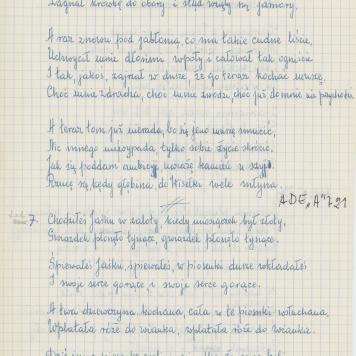 Zagnał krówkę do obory i stąd wzięły się jamory.
A raz znowu pod jabłonią, co ma takie cudne liście,
Uchwycił mnie dłońmi wpoły i całował tak ogniście
I tak, jakoś, zajrzał w duszę, że go teraz kochać muszę,
Choć mnie zdradza, choć mnie zwodzi, choć już do mnie nie przychodzi.
A teraz tom już nierada, bo się jeno muszę smucić,
Nic innego nie wypada, tylko sobie życie skrócić,
Jak się poddam ambicyji, uwiążę kamień u szyji
Rzucę się kędy głębina, do Wisełki wele młyna.
ADE "A" 721
7. Chodziłeś Jaśku w zaloty, kiedy miesiączek był złoty,
Gwiazdek płonęło tysiące, gwiazdek płonęło tysiące.
Śpiewałeś Jaśku, śpiewałeś, w piosenki duszę wkładałeś
I swoje serce gorące, i swoje serce gorące.
A twa dziewczyna, kochana, cała w te piosnki wsłuchana,
Wplatała róże do wianka, wplatała róże do wianka.